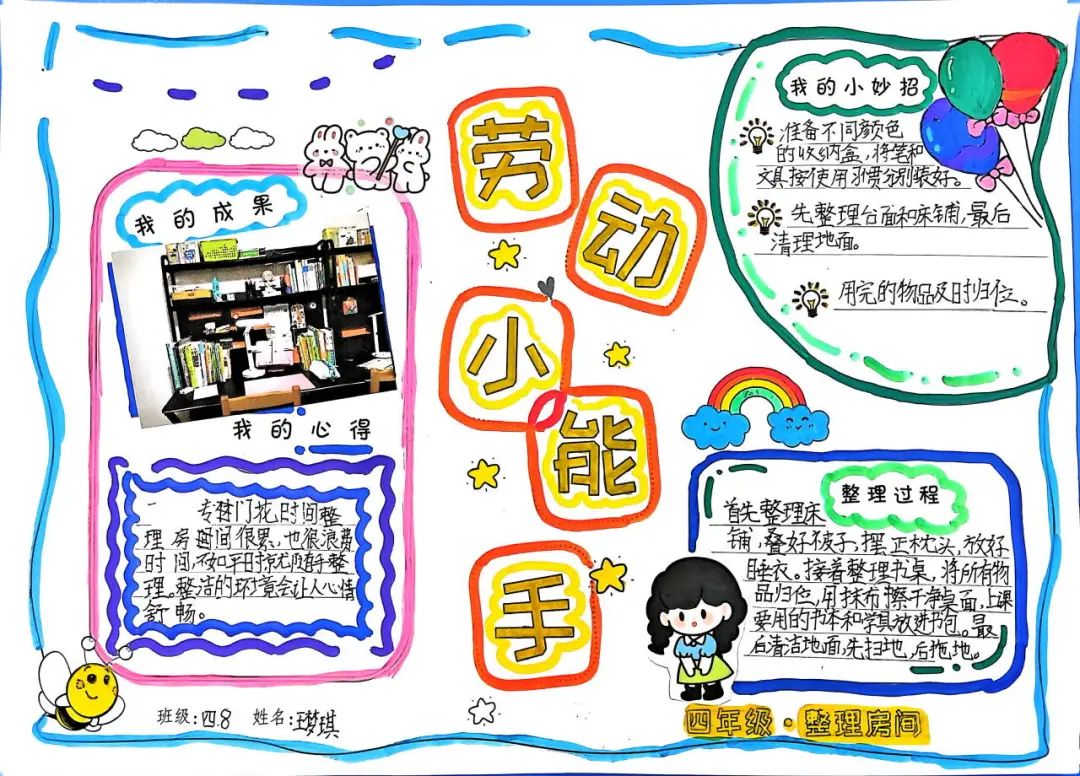 劳动小能手
我的成果
我的心得
专门花时间整
理房间很累，也很浪费
时间，不如平时就随手整
理，整洁的环境会让人心情
舒畅。
班级：四.8 姓名：王梦琪
我的小妙招
准备不同颜色
的收纳盒，将笔和
文具按使用习惯分别装好。
先整理台面和床铺，最后
清理地面。
用完的物品及时归位。
整理过程
首先整理床
铺，叠好被子，摆正枕头，放好
睡衣。接着整理书桌，将所有物
品归位，用抹布擦干净桌面，上课
要用的书本和学具放进书包。最
后清洁地面，先扫地，后拖地。
四年级·整理房间